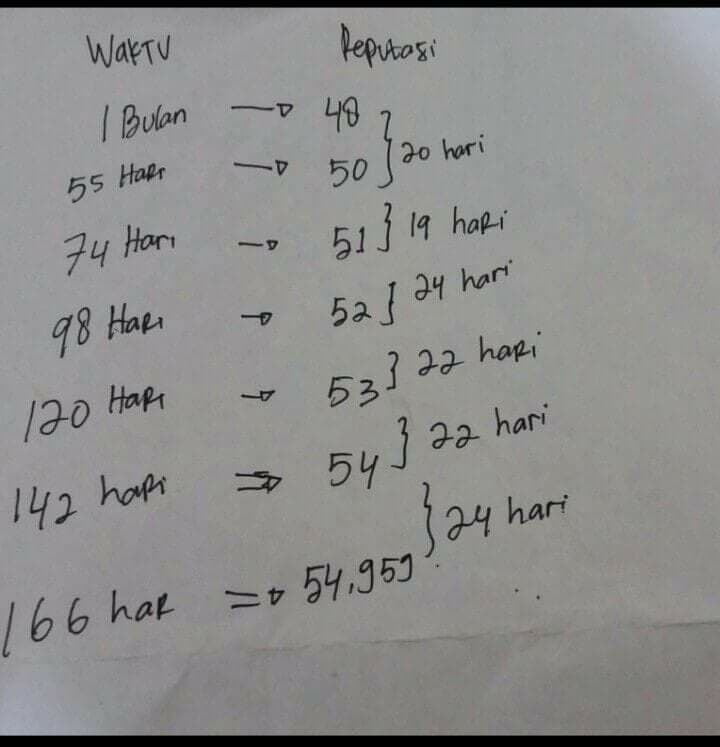 WAKTU Reputasi
1 Bulan → 48
} 20 hari
55 Hari → 50
74 Hari → 51 } 19 hari
98 Hari → 52 } 24 hari
120 Hari → 53 } 22 hari
142 hari ⇒ 54 } 22 hari
} 24 hari
166 har ⇒ 54,959